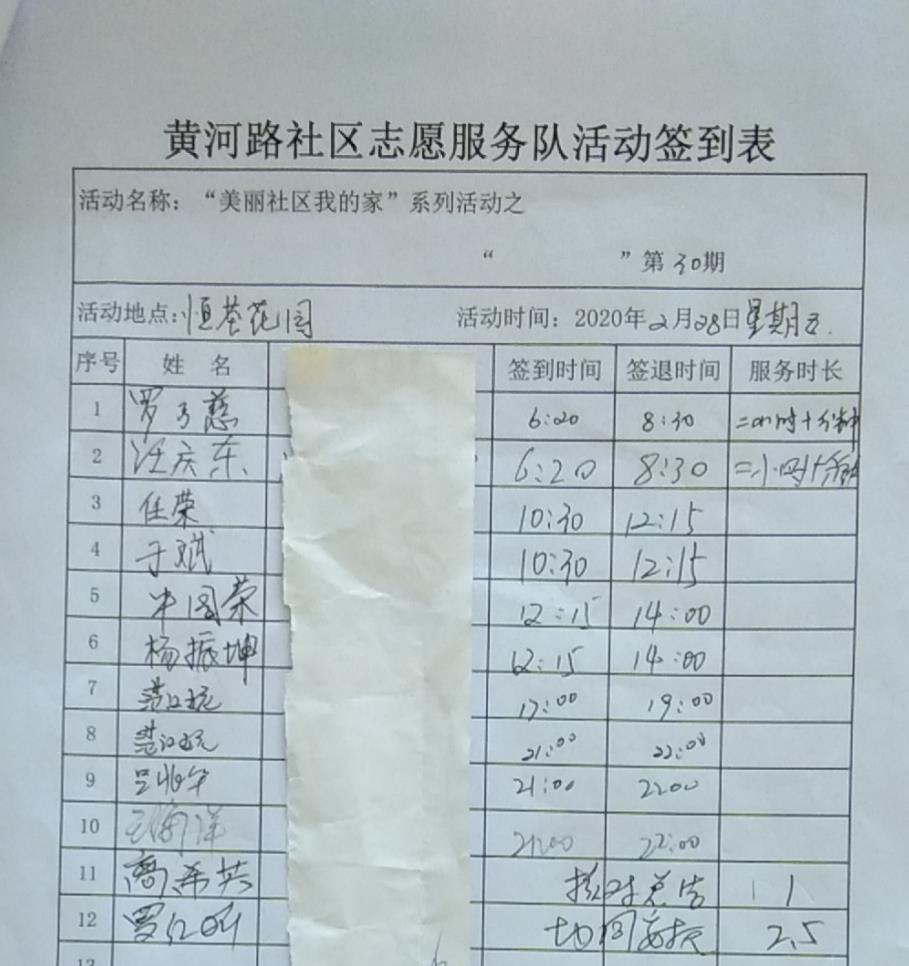 黄河路社区志愿服务队活动签到表
活动名称：“美丽社区我的家”系列活动之
“ ”第30期
活动地点：恒基花园 活动时间：2020年2月28日星期五.
序号 姓名 签到时间 签退时间 服务时长
1 罗 慈 6:20 8:30 二小时十分钟
2 汪庆东 6:20 8:30 二小时十分钟
3 任荣 10:30 12:15
4 于斌 10:30 12:15
5 国荣 12:15 14:00
6 杨振坤 12:15 14:00
7 17:00 19:00
8 21:00 22:00
9 21:00 22:00
10 王海洋 21:00 22:00
11 高希共 1
12 罗 2.5
13